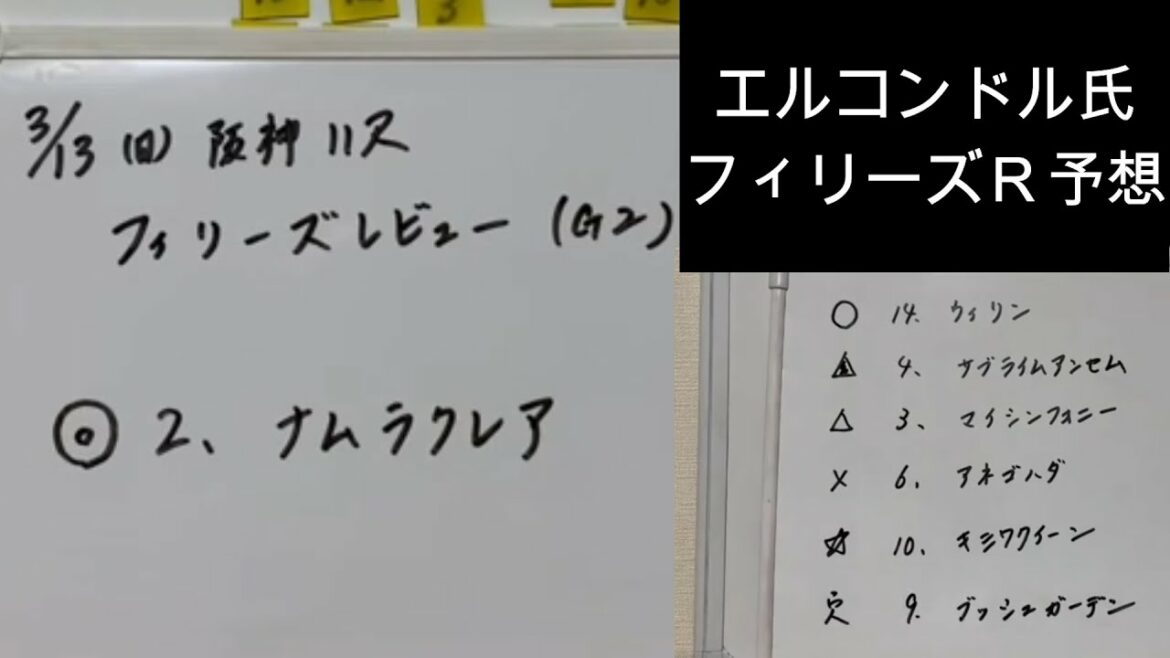 3/13(日) 阪神11R
フィリーズレビュー(G2)
◎ 2、ナムラクレア
エルコンドル氏
フィリーズR 予想
○ 14. ウィリン
▲ 4、サブライムアンセム
△ 3、マイシンフォニー
× 6、アネゴハダ
☆ 10、キミワクイーン
穴 9. ブッシュガーデン
3